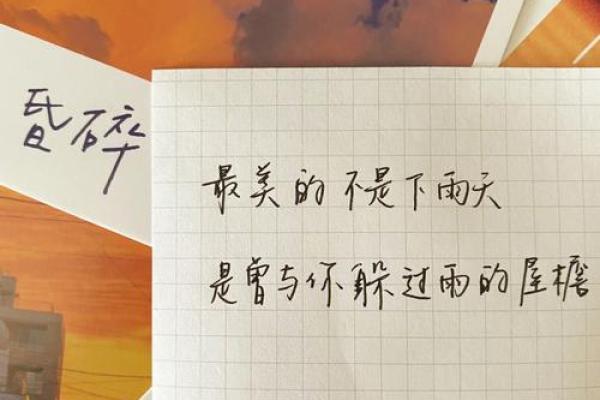 昏碎
最美的不是下雨天
是曾与你躲过雨的屋檐